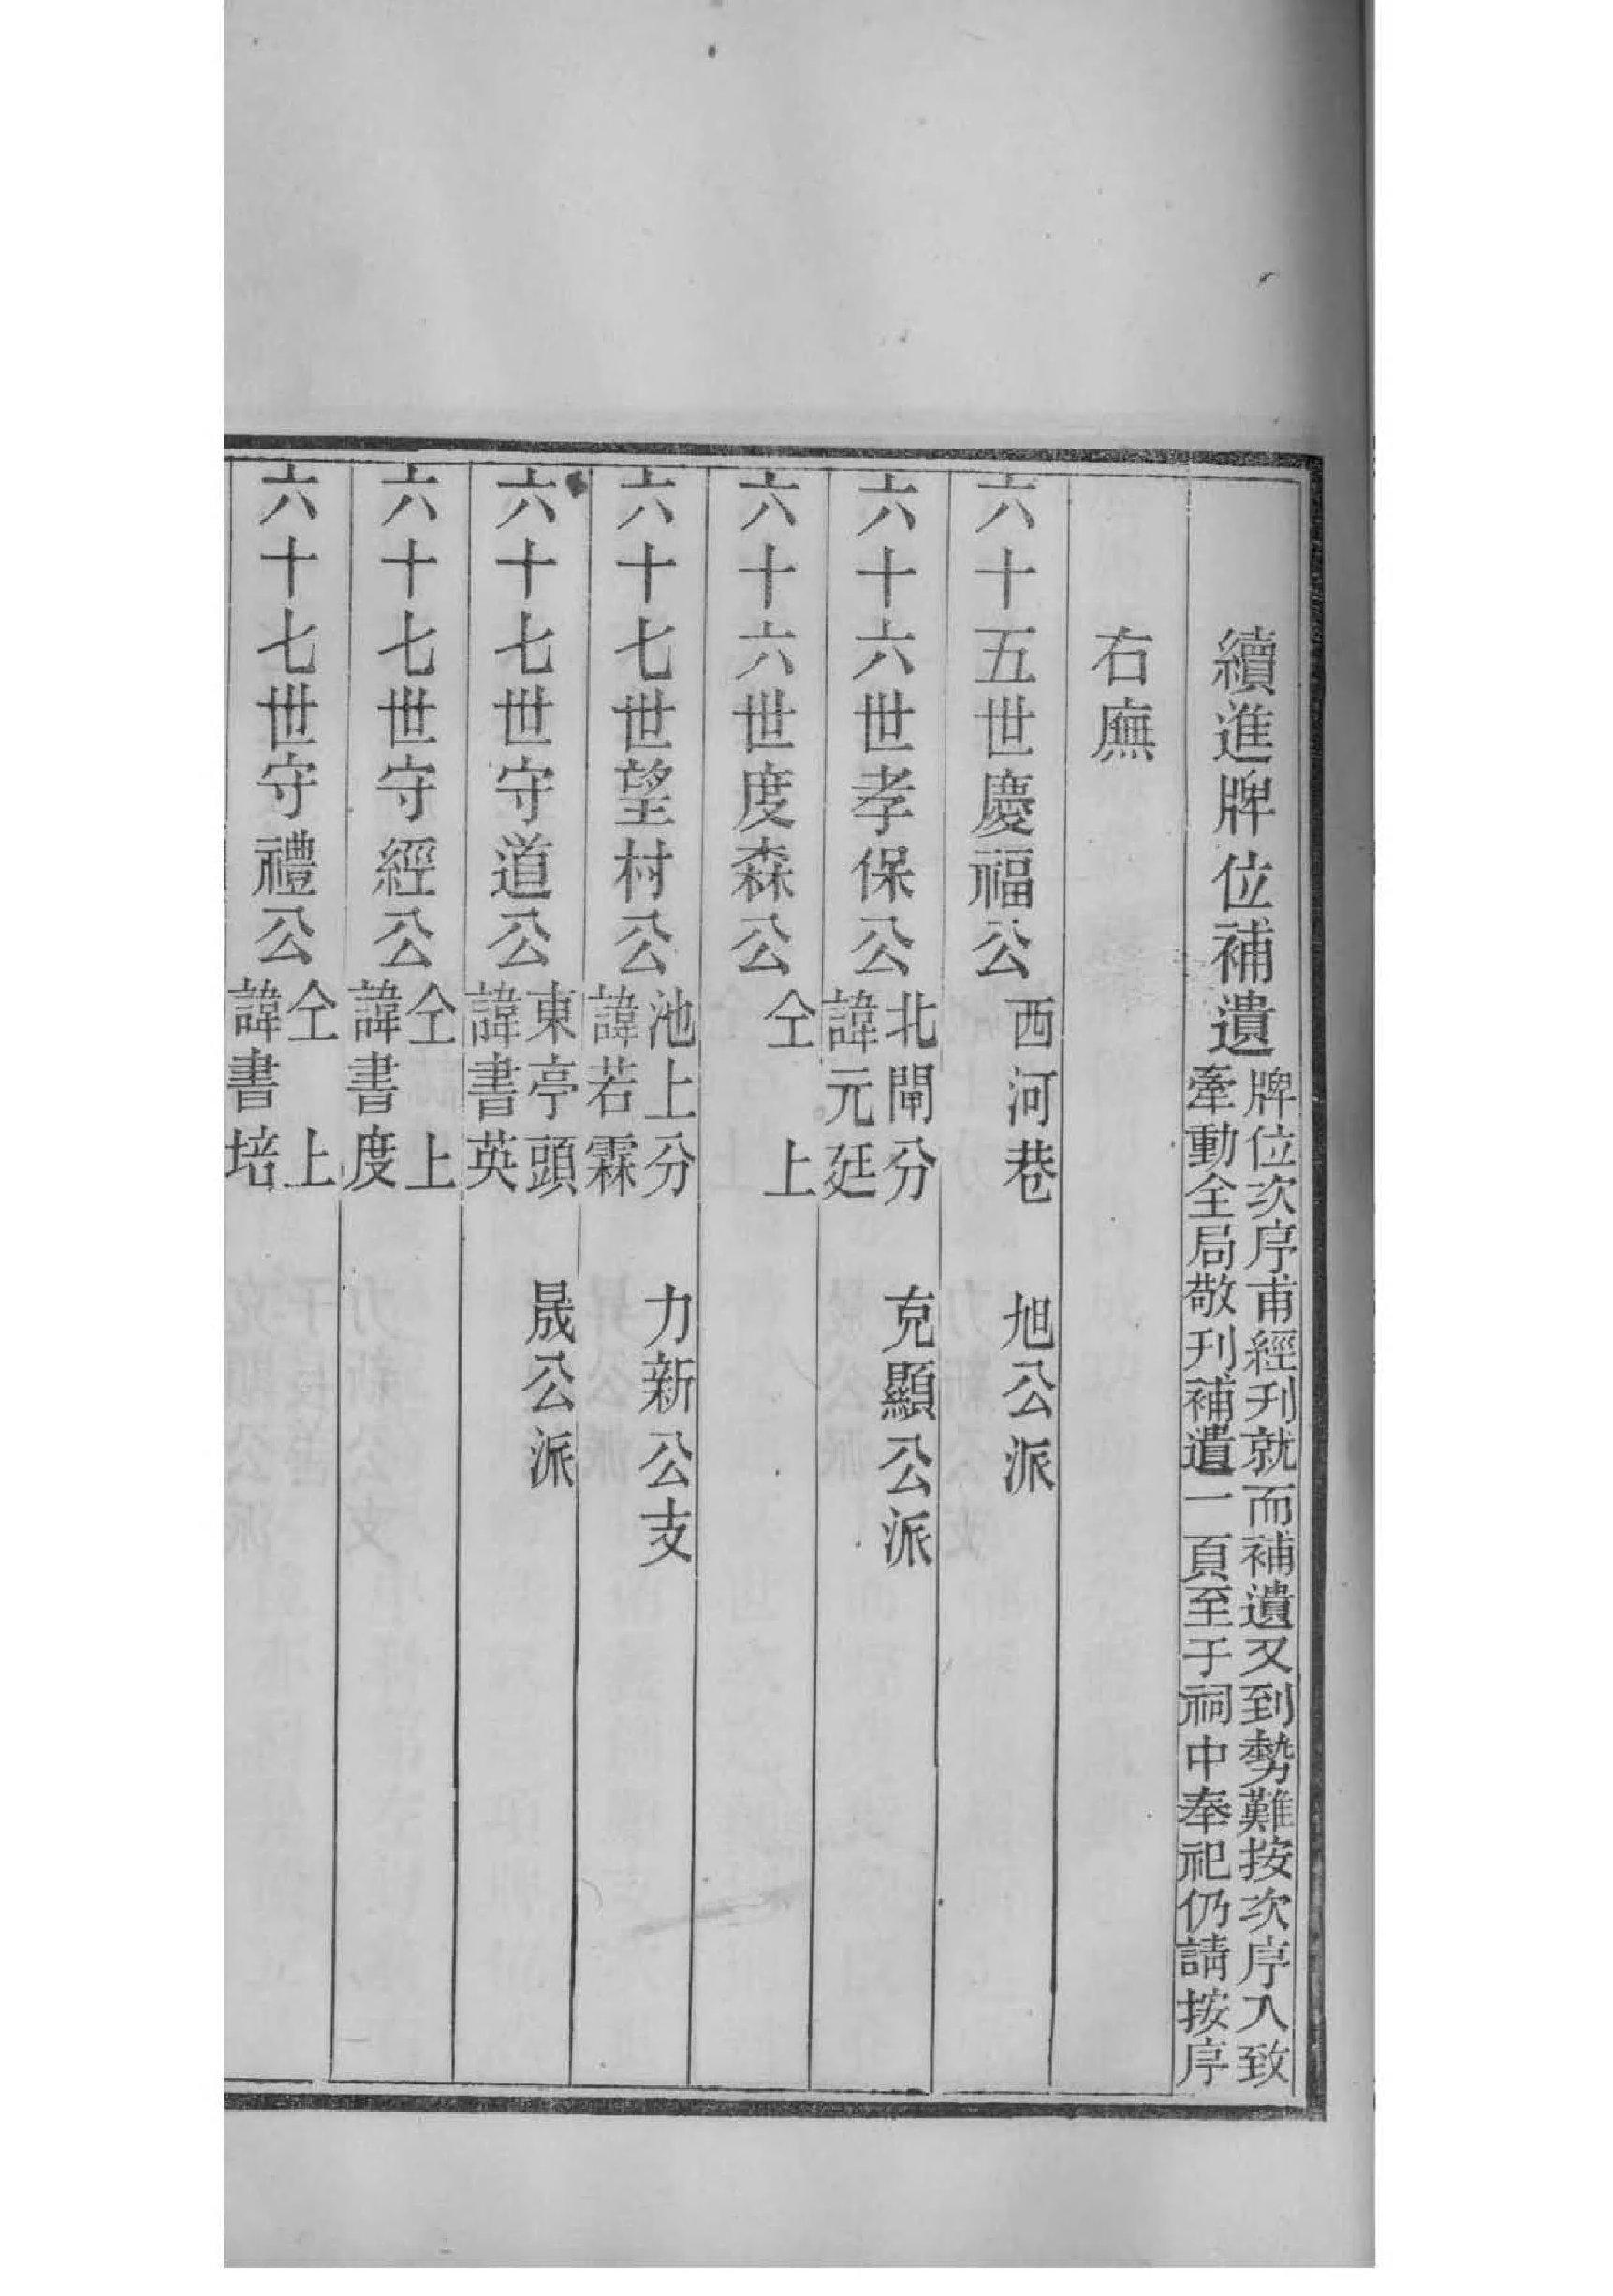 續進牌位補遺牌位次序甫經刋就而補遺又到勢難按次序入致
牽動全局敬刋補遺一頁至于祠中奉祀仍請按序
右廡
六十五世慶福公西河巷 旭公派
六十六世孝保公北閘分 克顯公派
諱元廷
六十六世度森公仝上
六十七世望村公池上分 力新公支
諱若霖
六十七世守道公東亭頭 晟公派
諱書英
六十七世守經公仝上
諱書度
六十七世守禮公仝上
諱書培